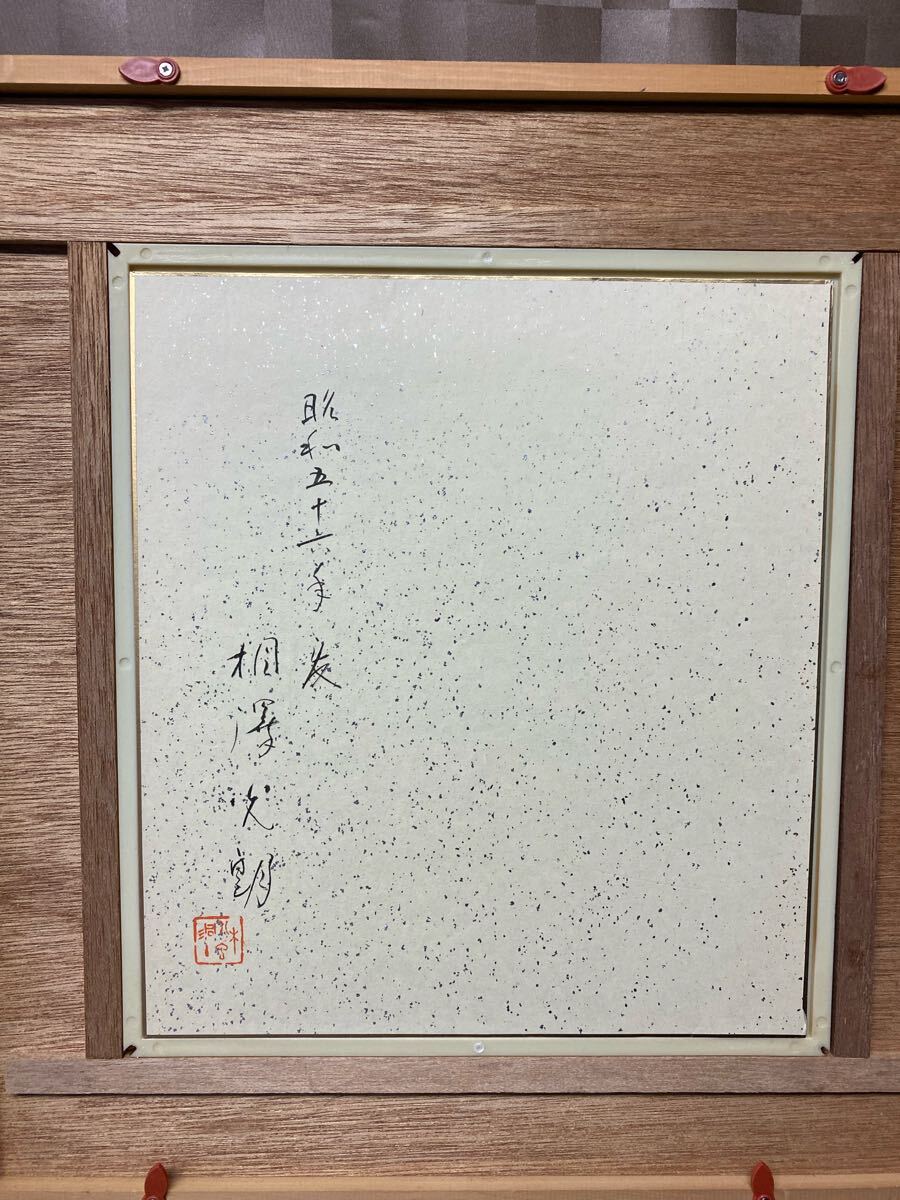 昭和五十六年 友
相澤光朗